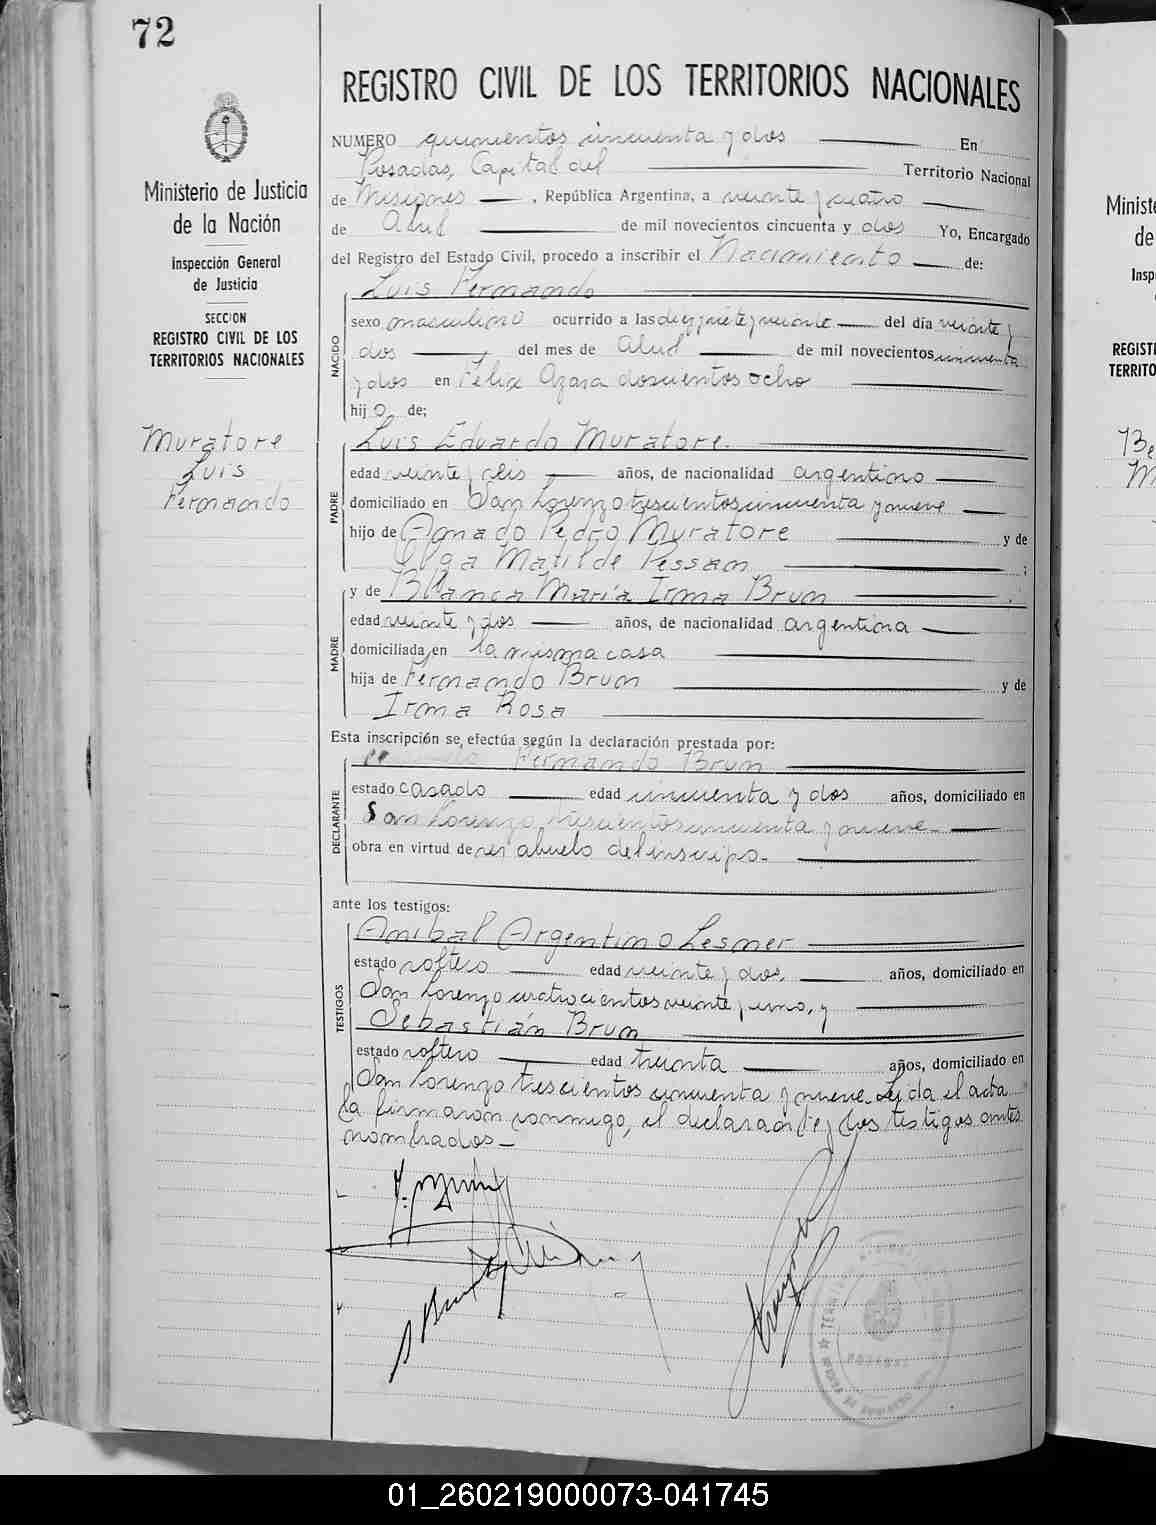 72
REGISTRO CIVIL DE LOS TERRITORIOS NACIONALES
Ministerio de Justicia
de la Nación
Inspección General
de Justicia
SECCION
REGISTRO CIVIL DE LOS
TERRITORIOS NACIONALES
Muratore
Luis
Fernando
NUMERO quinientos cincuenta y dos En
Posadas, Capital del Territorio Nacional
de Misiones, República Argentina, a veinte y cuatro
de Abril de mil novecientos cincuenta y dos Yo, Encargado
del Registro del Estado Civil, procedo a inscribir el Nacimiento de:
NACIDO
Luis Fernando
sexo masculino ocurrido a las diez y siete y veinte del día veinte y
dos del mes de Abril de mil novecientos cincuenta
y dos en Félix Azara doscientos ocho
hijo de;
PADRE
Luis Eduardo Muratore.
edad veinte y seis años, de nacionalidad argentino
domiciliado en San Lorenzo trescientos cincuenta y nueve
hijo de Amado Pedro Muratore y de
Olga Matilde Pessan ;
MADRE
y de Blanca María Irma Brun .
edad veinte y dos años, de nacionalidad argentina
domiciliada en la misma casa
hija de Fernando Brun y de
Irma Rosa
Esta inscripción se efectúa según la declaración prestada por:
DECLARANTE
Fernando Brun
estado casado edad cincuenta y dos años, domiciliado en
San Lorenzo trescientos cincuenta y nueve
obra en virtud de ser abuelo del inscripto.
ante los testigos:
TESTIGOS
Anibal Argentino Lesner
estado soltero edad veinte y dos, años, domiciliado en
San Lorenzo cuatrocientos veinte y uno, y
Sebastián Brun
estado soltero edad treinta años, domiciliado en
San Lorenzo trescientos cincuenta y nueve. Leída el acta
la firmaron conmigo, el declarante y los testigos antes
nombrados
Minist
de
Insp
REGIST
TERRITO
01_260219000073-041745